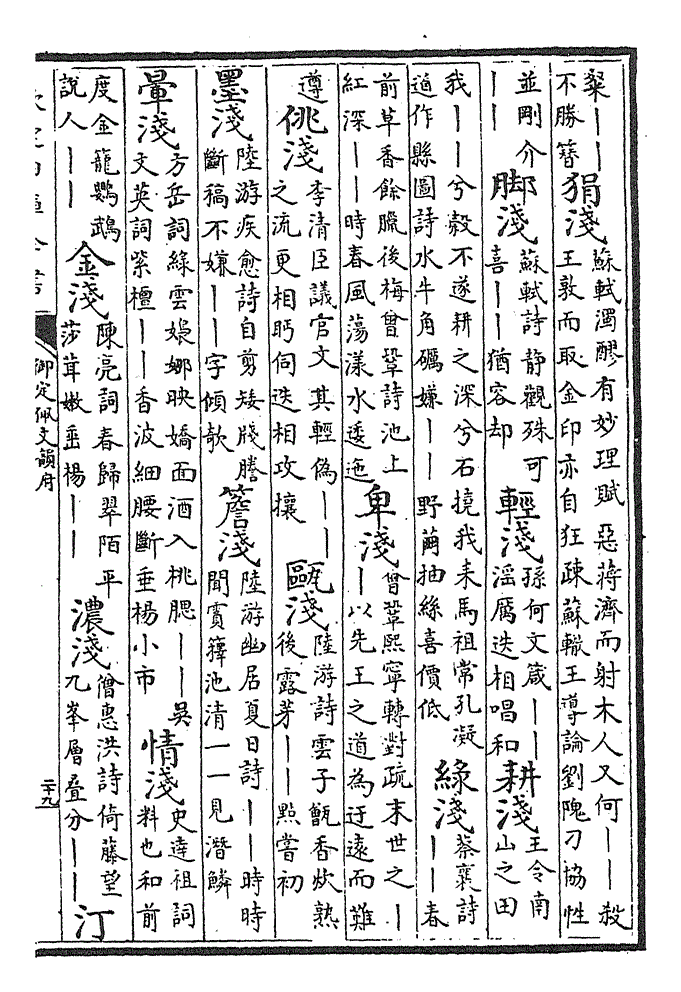 粲——
不勝簮
狷淺
蘇軾濁醪有妙理賦惡蔣濟而射木人又何——殺
王敦而取金印亦自狂疎蘇轍王導論劉隗刁協性
並剛介
——
脚淺
蘇軾詩静觀殊可
喜——猶容却
輕淺
孫何文箴——
淫厲迭相唱和
耕淺
王令南
山之田
我——兮榖不遂耕之深兮石撓我耒馬祖常孔凝
道作縣圖詩水牛角礪嫌——野繭抽絲喜價低
綠淺
蔡襄詩
——春
前草香餘臘後梅曾鞏詩池上
紅深——時春風蕩漾水逶迤
卑淺
曾鞏熙寧轉對疏末世之—
—以先王之道為迂遠而難
遵
佻淺
李清臣議官文其輕偽——
之流更相眄伺迭相攻攘
甌淺
陸游詩雲子甑香炊熟
後露芽——點嘗初
墨淺
陸游疾愈詩自剪矮牋謄
斷稿不嫌——字傾欹
簷淺
陸游幽居夏日詩——時時
聞賓籜池清一一見潛鱗
暈淺
方岳詞綠雲嫋娜映嬌面酒入桃腮——吳
文英詞紫檀——香波細腰斷垂楊小市
情淺
史達祖詞
料也和前
度金籠鸚鵡
說人——
金淺
陳亮詞春歸翠陌平
莎茸嫩垂楊——
濃淺
僧惠洪詩倚藤望
九峯層叠分——
汀
欽定四庫全書
御定佩文韻府
二十九